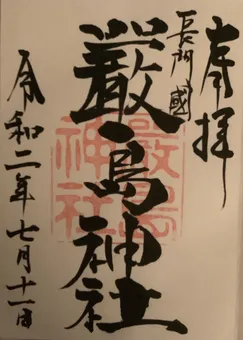 奉拝
長門國
厳島神社
令和二年七月十一日
嚴島
神社